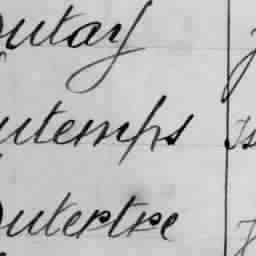 Dutay
Dutemps
Dutertre